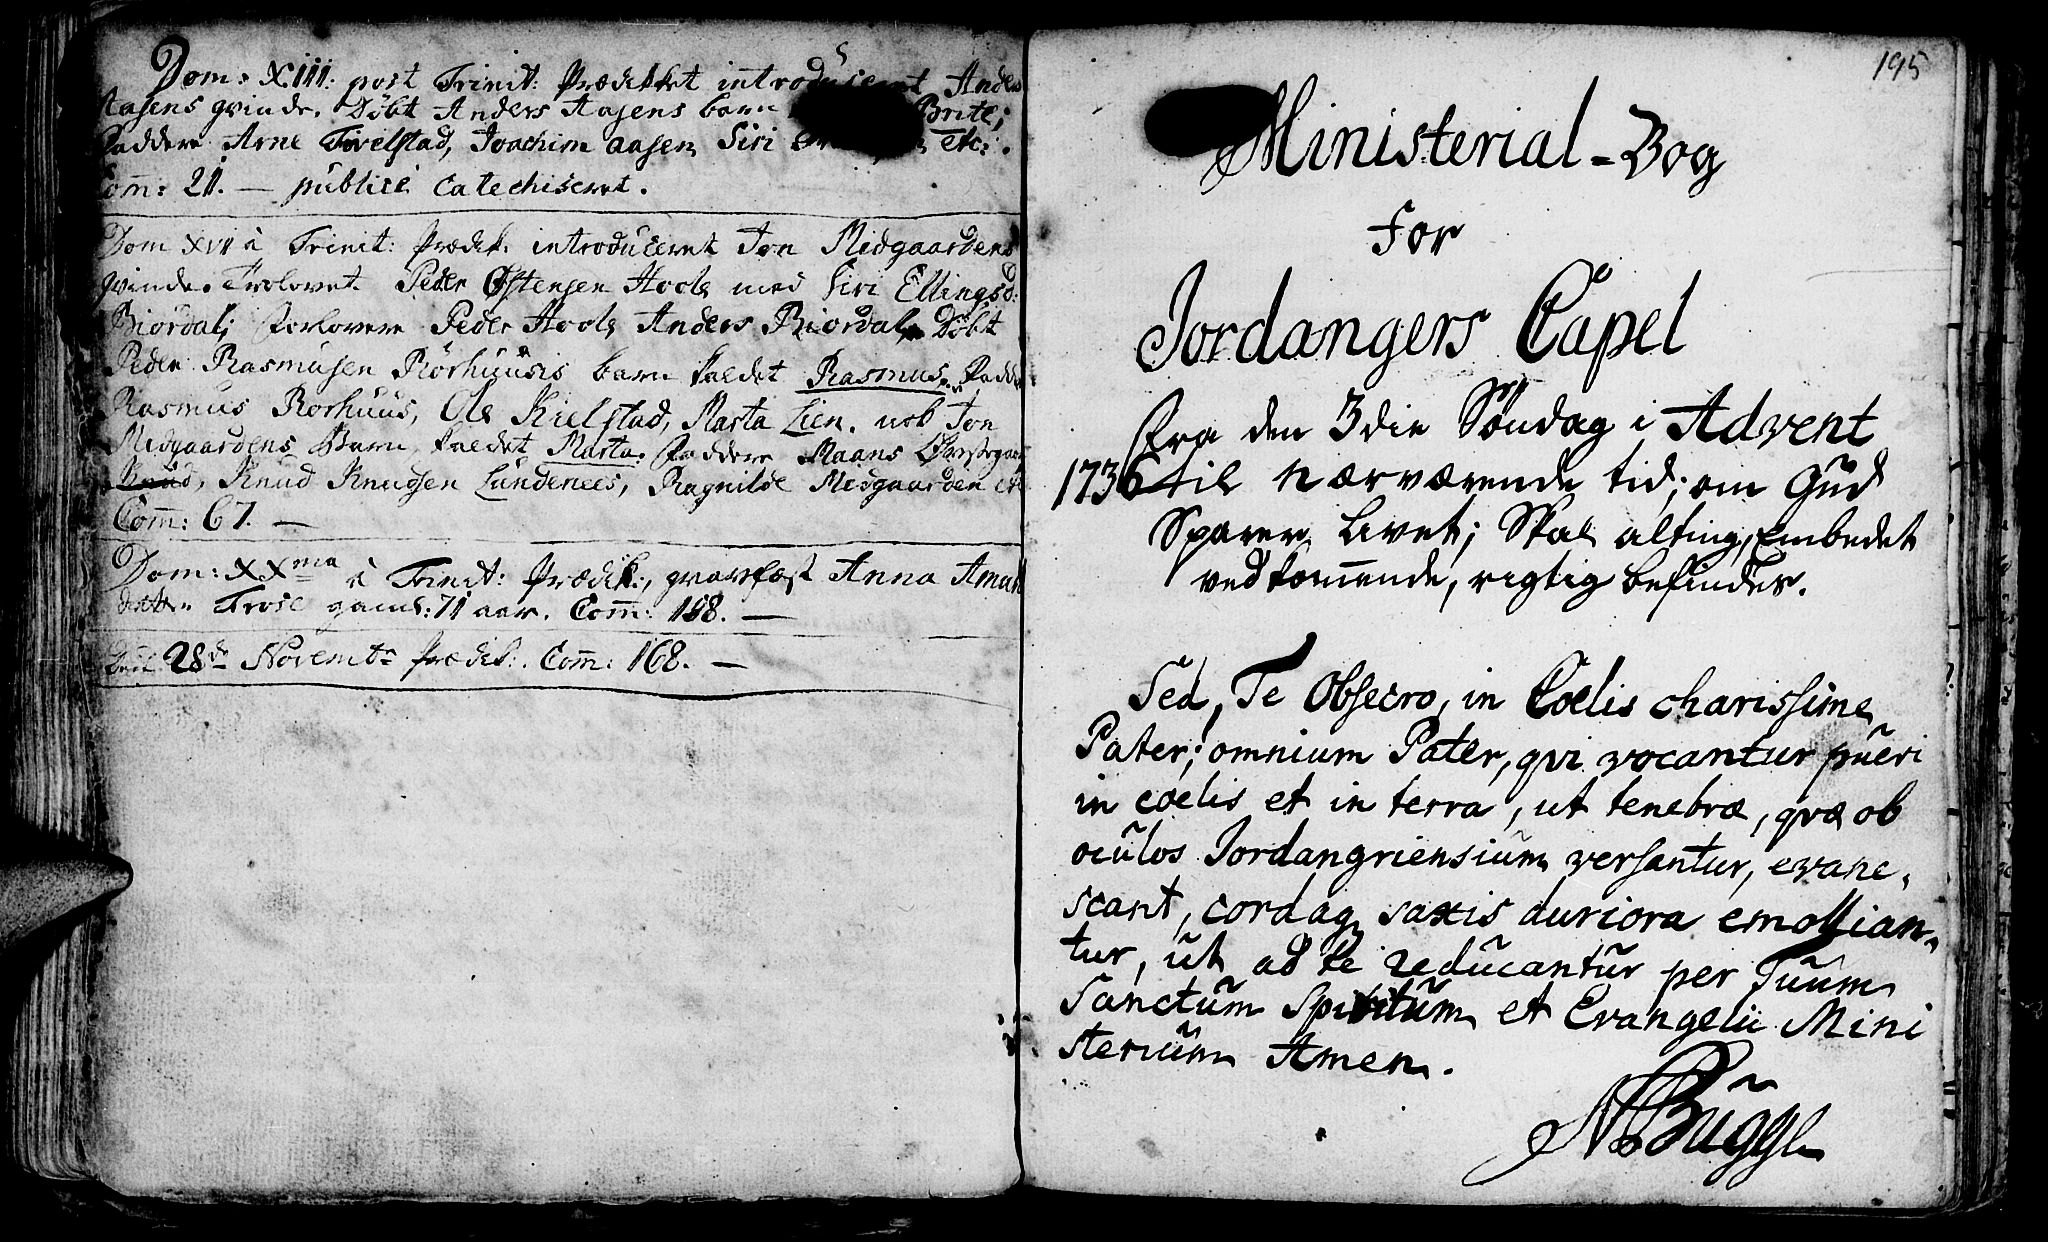 Dom: XIII: post Trinit: Prædikket introduceret Anders
Aasens qvinde. Døbt Anders Aasens barn Brite;
Faddere Arne Tivelstad, Joachim Aasen, Siri etc:.
Com̄: 21. — publicè Catechiseret.
Dom XVII à Trinit: Prædik: introduceret Jon Midgaardens
qvinde. Trolovet Peder Østensen Hoole med Siri Ellingsd:
Biordal; Forlovere Peder Hoole Anders Biordal, Døbt
Peder Rasmusen Rørhuusis barn kaldet Rasmus. Fadd:
Rasmus Rorhuus, Ole Kielstad, Marta Lien. nok Jon
Midgaardens Barn kaldet Marta. Faddere Maans
Knud, Knud Knudsen Lundenees, Ragnilde Midgaarden etc
Com̄: 67. —
Dom: XXma à Trinit: Prædik:, gravfæst Anna
Trose gaml: 71 aar. Com̄: 188. —
28de Novembr Prædik: Com̄: 168. —
195
Ministerial-Bog
For
Jordangers Capel
Fra den 3die Søndag i Advent
1736 til nærværende tid; om Gud
Sparer Livet; Skal alting, Embedet
vedkom̄ende, rigtig befindes.
Sed, Te Obsecro, in Coelis charissime
Pater; omnium Pater, qvi vocantur pueri
in coelis et in terra, ut tenebræ, qvæ ob
oculos Jordangriensium versantur, evane-
scant, cordaq saxis duriora emollian-
tur, ut ad te reducantur per Tuum
Sanctum Spiritum et Evangelii Mini
sterium Amen.
NBugge